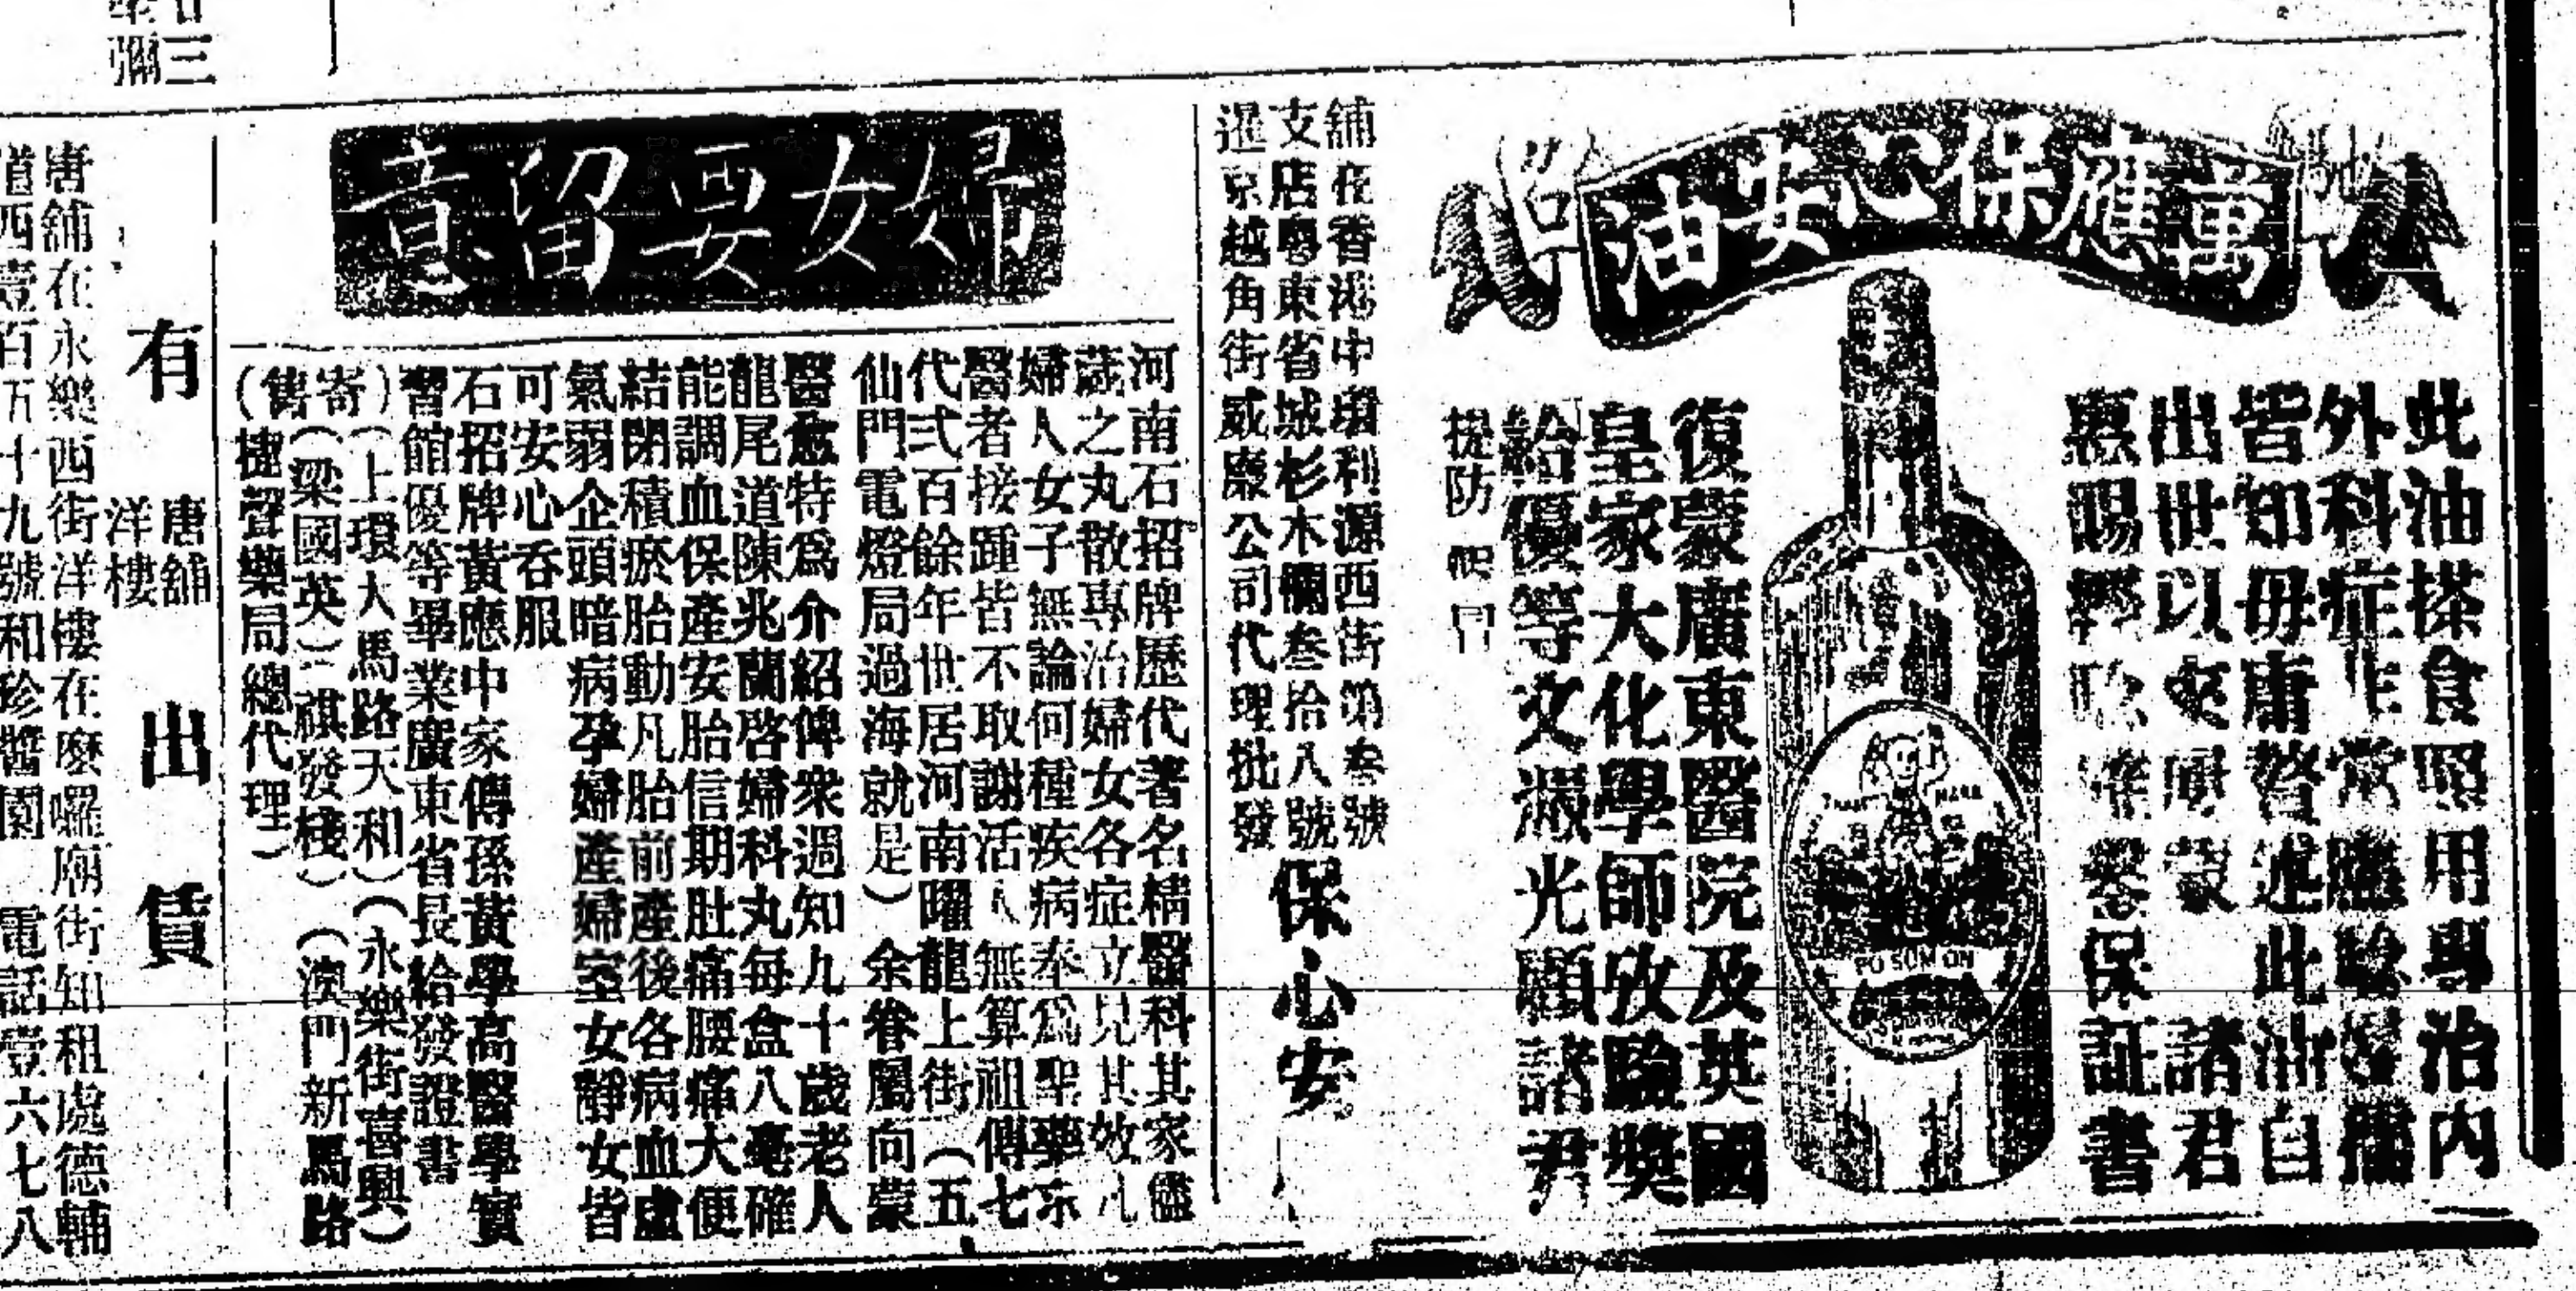 萬應保心安油
此油搽食照用專治內
外科症非常應驗
皆知毋庸贅述此油自
出世以來 蒙 諸君
惠賜 保証書
TRADE MARK
PO SUM ON
復蒙廣東醫院及英國
皇家大化學師攷驗獎
給優等文 光顧諸尹
提防假冒
舖在香港中環利源西街第叁號
支店粵東省城杉木欄叁拾八號
暹京越角街威廉公司代理批發
保心安
婦女要留意
河南石招牌歷代著名精醫科其家儲
蔵之丸散專治婦女各症立見其效凡
婦人女子無論何種疾病奉為聖藥示
醫者接踵皆不取謝活人無算祖傳七
代弍百餘年世居河南曜龍上街(五
仙門電燈局過海就是)余眷屬向蒙
醫愈特為介紹俾衆週知九十歲老人
龍尾道陳兆蘭啓婦科丸每盒八毫確
能調血保產安胎信期肚痛腰痛大便
結閉積瘀胎動凡胎前產後各病血虛
氣弱企頭暗病孕婦產婦室女靜女皆
可安心吞服
石招牌黃應中家傳孫黃學高醫學實
習館優等畢業廣東省長給發證書
寄售
(上環大馬路天和)(永樂街喜興)
(梁國英)(祺發棧)(澳門新馬路
捷聲樂局總代理)
有 唐舖洋樓 出賃
唐舖在永樂西街洋樓在麼囉廟街知租處德輔
道西壹百五十九號和珍醬園 電話壹六七八
廿三
彌